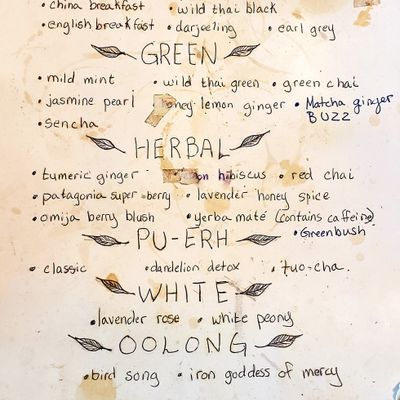 • china breakfast • wild thai black
• english breakfast • darjeeling • earl grey
GREEN
• mild mint • wild thai green • green chai
• jasmine pearl oney lemon ginger • Matcha ginger
BUZZ
• sencha
HERBAL
• tumeric ginger on hibiscus • red chai
• patagonia super berry • lavender honey spice
• omija berry blush • yerba maté (contains caffeine)
• Greenbush
PU-ERH
• classic • dandelion detox • tuo-cha.
WHITE
• lavender rose • white peony
OOLONG
• bird song • iron goddess of mercy